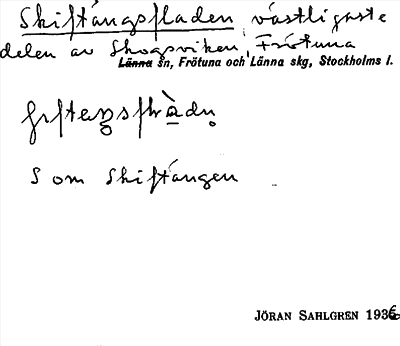 Skiftängsfladen, västligaste
delen av Skogsviken, Frötuna
Länna sn, Frötuna och Länna skg, Stockholms l.
Som Skiftängen
JÖRAN SAHLGREN 1936